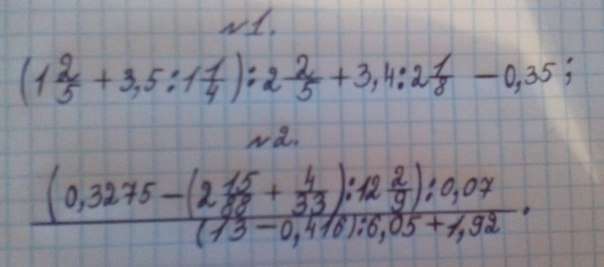 №1.
(1 2/5 + 3,5 : 1 1/4) : 2 2/5 + 3,4 : 2 1/8 − 0,35;
№2.
(0,3275 − (2 15/88 + 4/33) : 12 2/9) : 0,07
(13 − 0,416) : 6,05 + 1,92 .